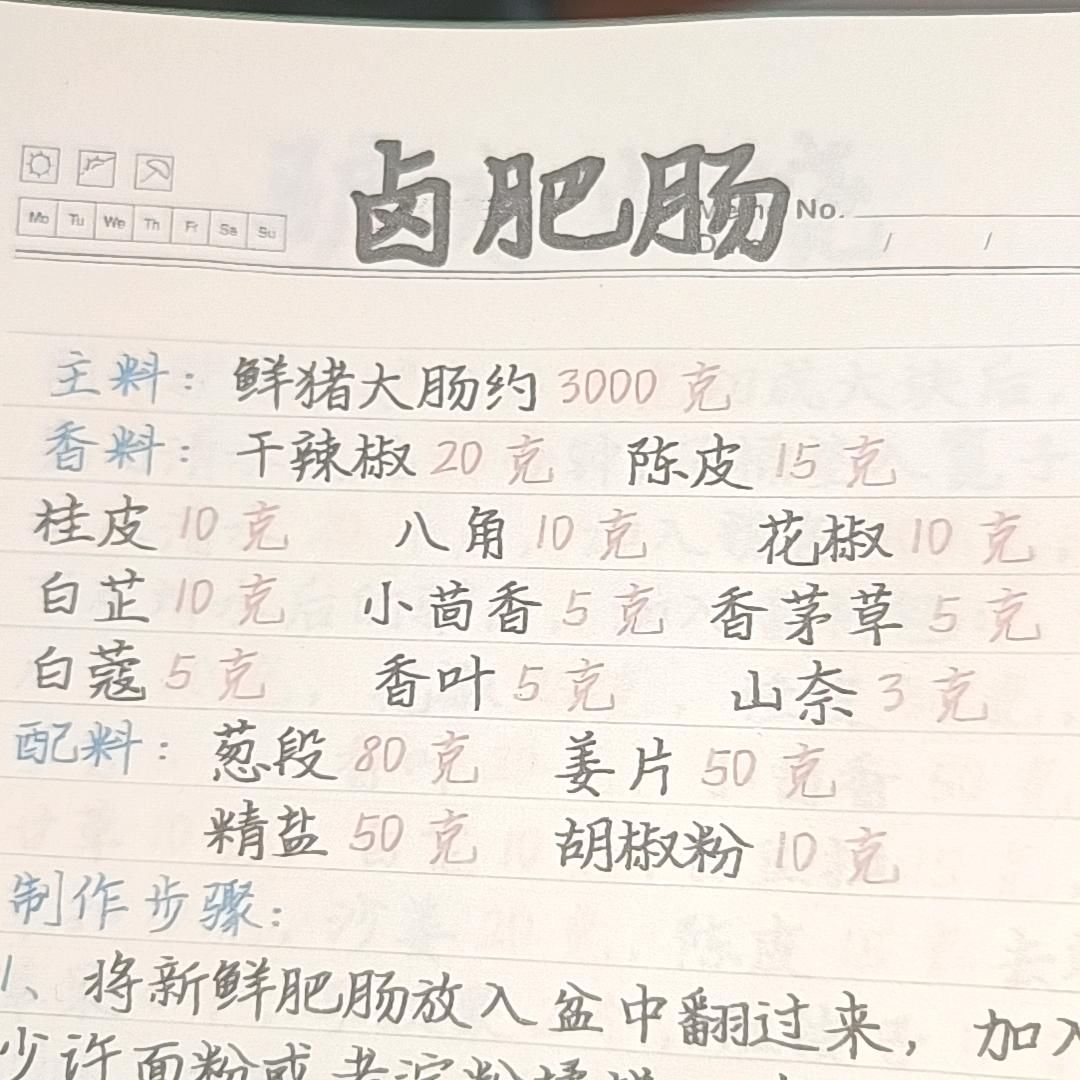 卤肥肠
Mo Tu We Th Fr Sa Su
No.
/ /
主料：鲜猪大肠约 3000 克
香料：干辣椒 20 克 陈皮 15 克
桂皮 10 克 八角 10 克 花椒 10 克
白芷 10 克 小茴香 5 克 香茅草 5 克
白蔻 5 克 香叶 5 克 山奈 3 克
配料：葱段 80 克 姜片 50 克
精盐 50 克 胡椒粉 10 克
制作步骤：
1、将新鲜肥肠放入盆中翻过来，加入
少许面粉或者淀粉